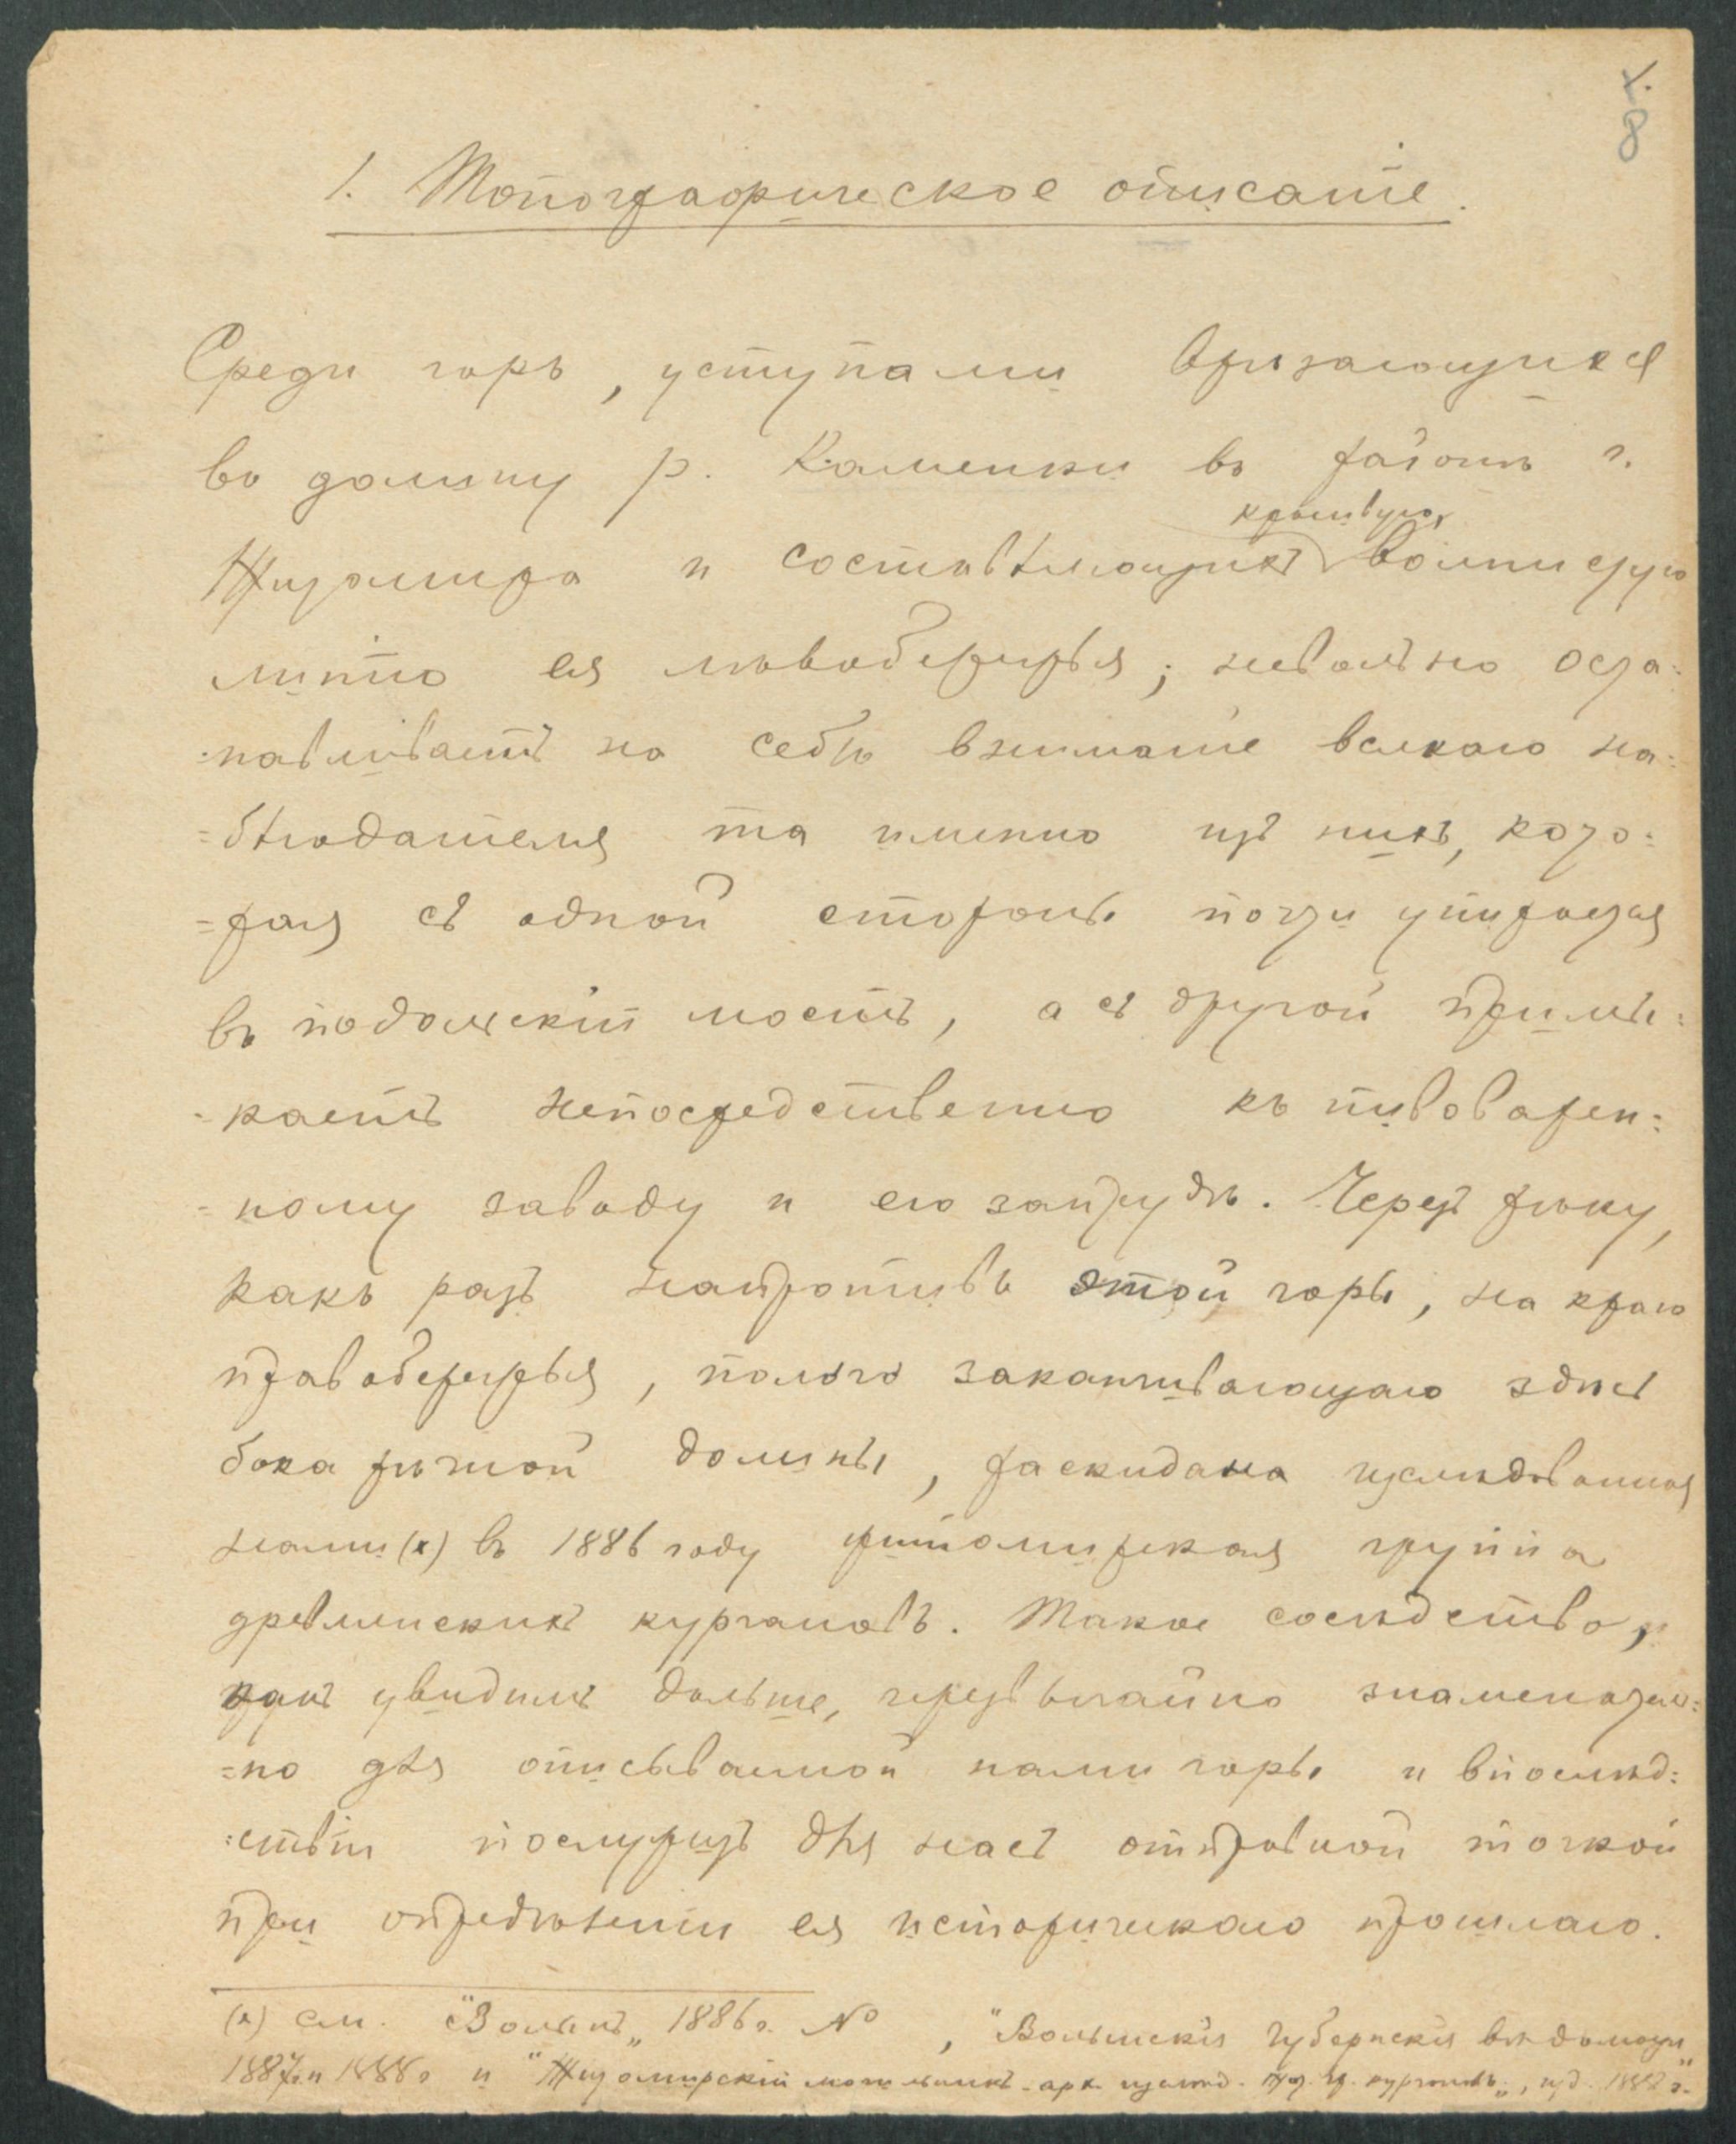 8.
1. Топографическое описаніе.
Среди горъ, уступами врѣзающихся
въ долину р. Каменки въ районѣ г.
Житомира и составляющихъ волнистую
крытую
линію ея лѣвобережья, невольно оста-
=навливаетъ на себѣ вниманіе всякаго на-
=блюдателя та именно изъ нихъ, кото-
=рая съ одной стороны почти упирается
въ подольскій мостъ, а съ другой примы-
=каетъ непосредственно къ пивоварен-
=ному заводу и его запрудѣ. Черезъ рѣку,
какъ разъ напротивъ этой горы, на краю
правобережья, полого заканчивающаго здѣсь
бока рѣчной долины, раскидана изслѣдованная
нами (х) въ 1886 году житомирская группа
древлянскихъ кургановъ. Такое сосѣдство,
какъ увидимъ дальше, чрезвычайно знаменатель-
=но для описываемой нами горы и впослѣд-
=ствіи послужитъ для насъ отправной точкой
при опредѣленіи ея историческаго прошлаго.
(х) см. "Волынь" 1886 г. №      , "Волынскія губернскія вѣдомости"
1887 и 1888 г и "Житомирскій могильникъ. арх. изслѣд. жит. гр. кургановъ", изд. 1888 г.